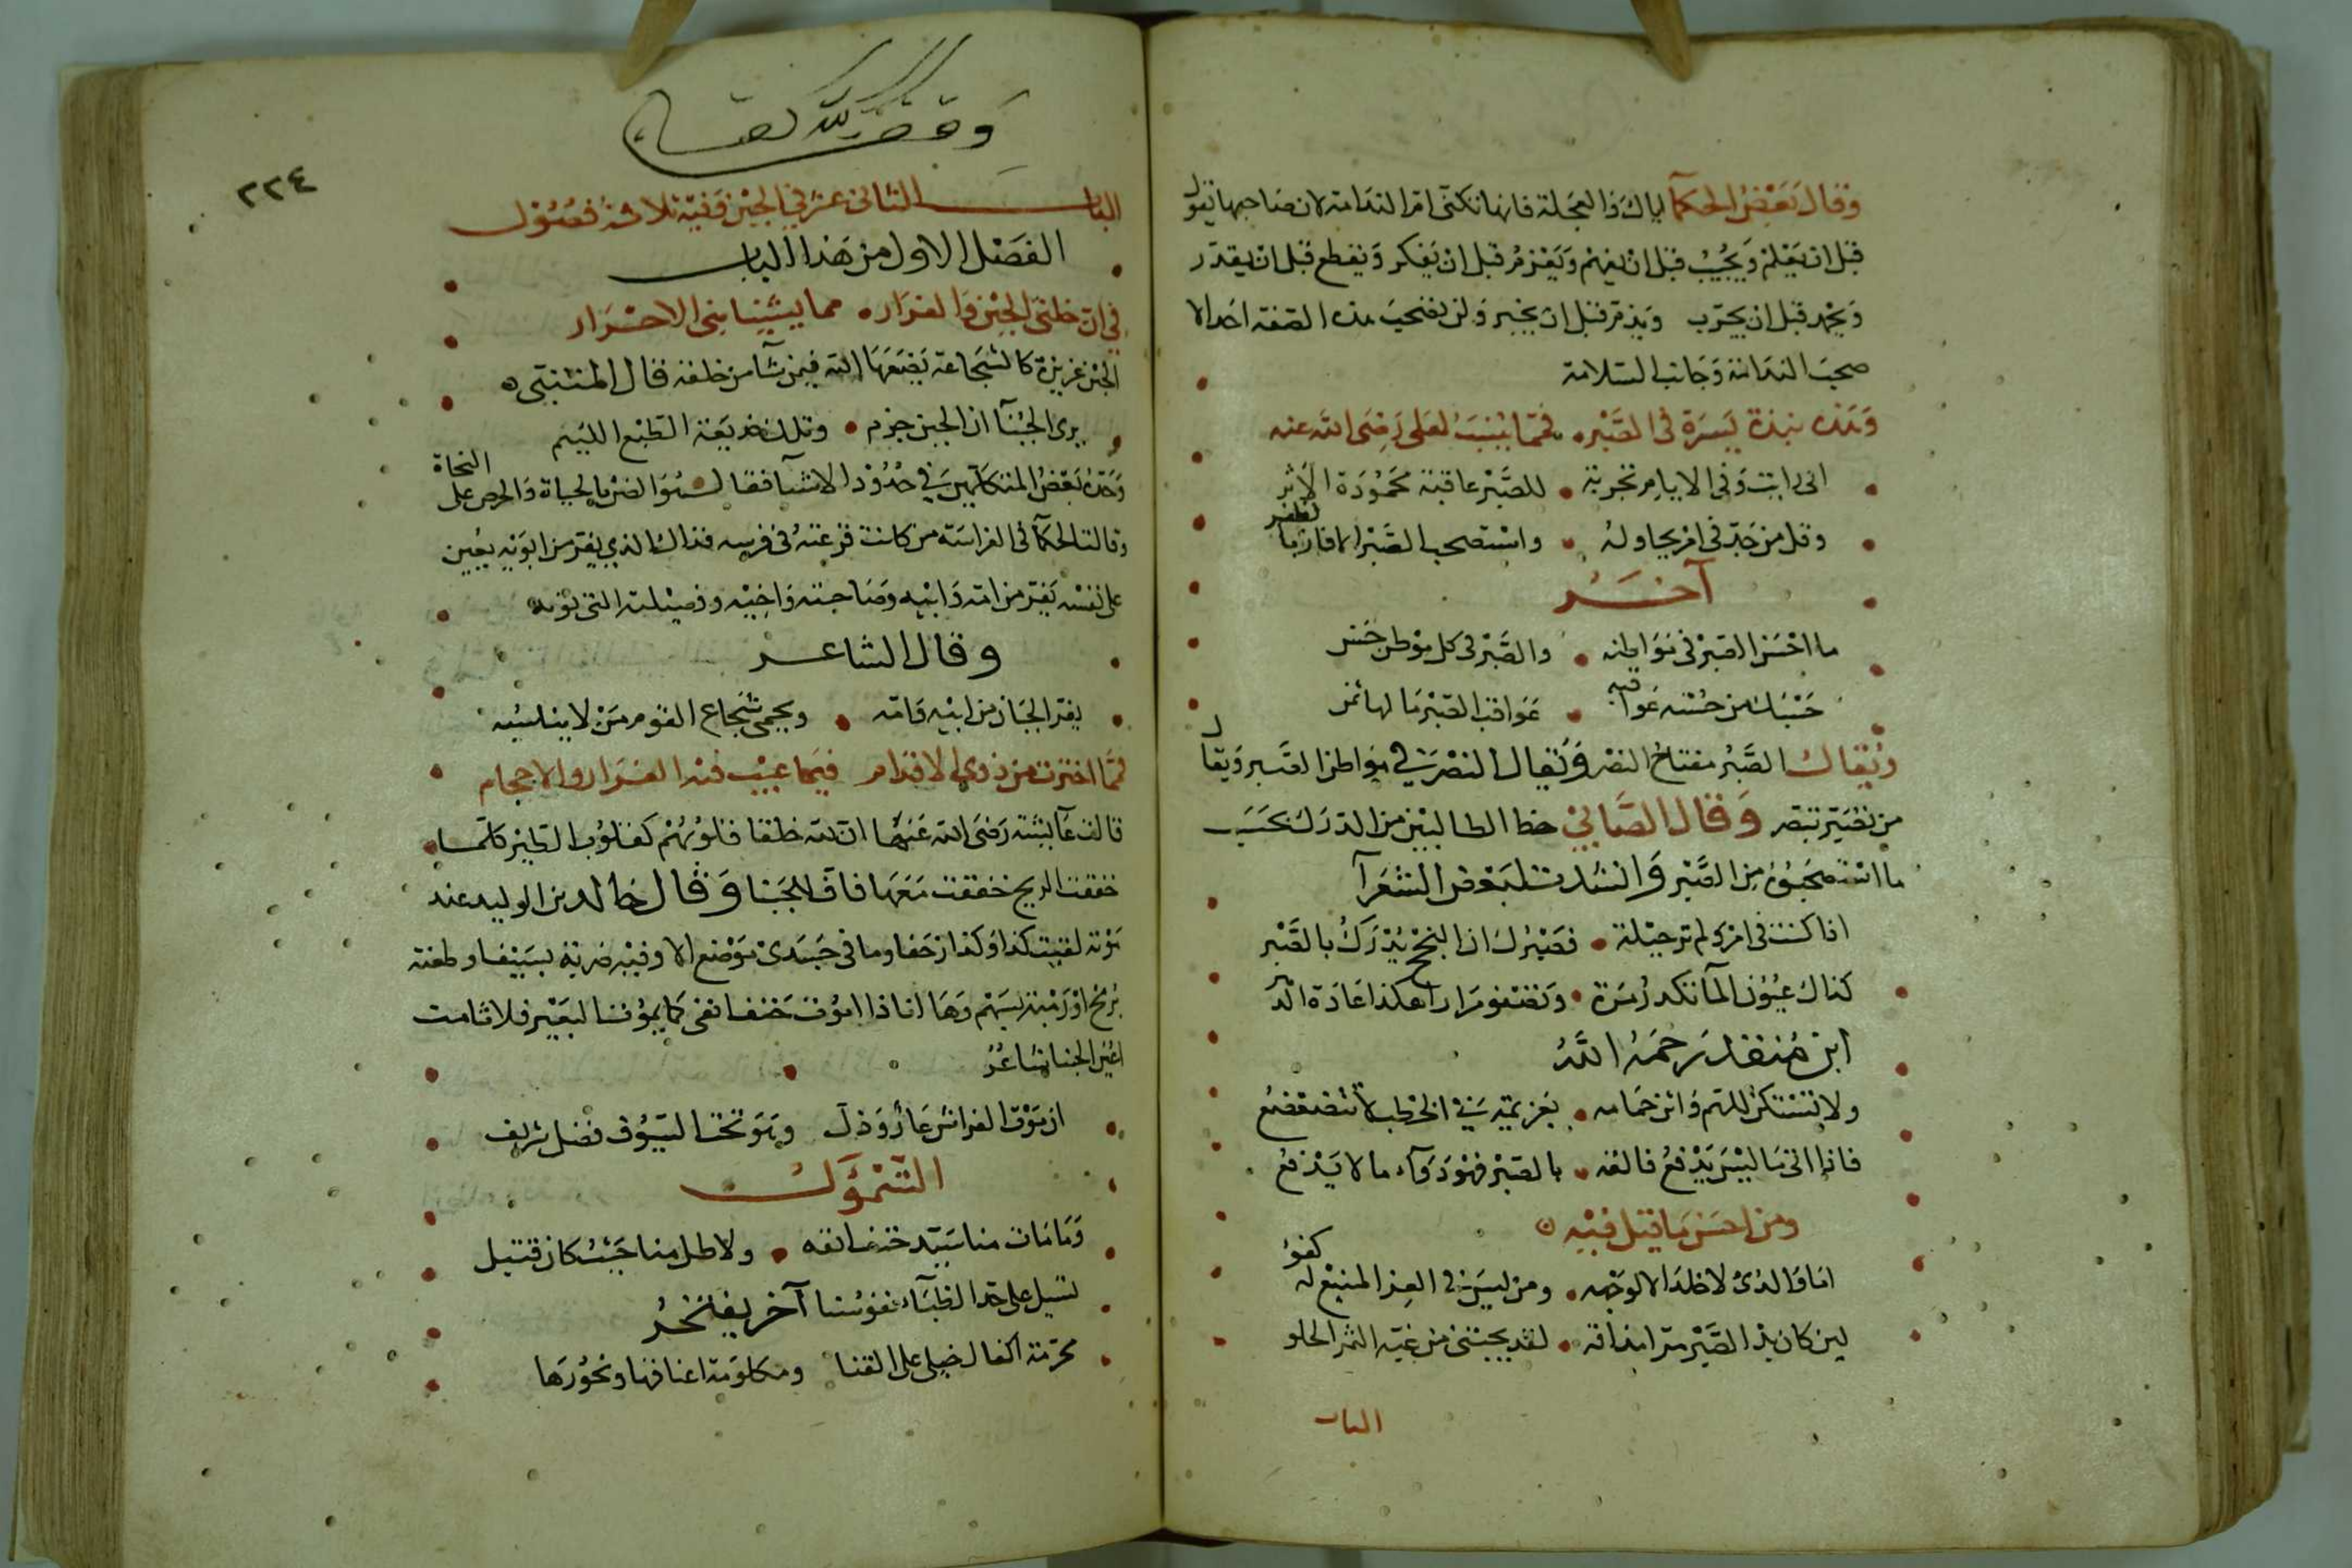 وقال بعض الحكمآ اياك والعجلة فانها تكنى ام الندامة لان صاحبها يقول
قبل ان يعلم ويجيب قبل ان يفهم ويعزم قبل ان يفكر ويقطع قبل ان يقدر
ويحمد قبل ان يجرب ويذم قبل ان يخبر ولن تصحب هذه الصفة احدا الا
صحب الندامة وجانب السلامة
وهذه نبذة يسيرة في الصبر فمما ينسب لعلى رضى الله عنه
انى رايت وفى الايام تجربة للصبر عاقبة محمودة الاثر
وقل من جد في امر يحاوله واستصحب الصبر الا فاز بالظفر
آخر
ما احسن الصبر في مواطنه والصبر في كل موطن حسن
حسبك من حسنه عواقبه عواقب الصبر ما لها ثمن
ويقال الصبر مفتاح النصر ويقال النصر في مواطن الصبر ويقال
من تصبر تبصر وقال الصابي حظ الطالبين من الدرك بحسب
ما استصحبوه من الصبر وانشدت لبعض الشعرآ
اذا كنت في امر ولم تر حيلة فصبرك ان النجح يدرك بالصبر
كذاك عيون المآ تكدر مرة وتصفو مرارا هكذا عادة الدهر
ابن منقذ رحمه الله
ولا تستكن للهم واثن حمامه بعزيمة في الخطب لا تتضعضع
فاذا اتى ما ليس يدفع فالقه بالصبر فهو دوآء ما لا يدفع
ومن احسن ما قيل فيه
اما والذى لا خلد الا لوجهه ومن ليس في العز المنيع له كفؤ
لين كان بذا الصبر مرا مذاقه لقد يجتنى من غبه الثمر الحلو
الباب
وقف لله تعالى
٢٢٤
الباب الثانى عشر في الجبن وفيه ثلاثة فصول
الفصل الاول من هذا الباب
في ان خلتى الجبن والفرار مما يشينا بنى الاحرار
الجبن غريزة كالشجاعة يضعها الله فيمن شآ من خلقه قال المتنبى
يرى الجبنآ ان الجبن حزم وتلك خديعة الطبع اللييم
وحده بعض المتكلمين في حدود الاشيآ فقال هو الضن بالحياة والحرص على النجاة
وقالت الحكمآ في الفراسة من كانت فزعته في فرسه فذاك الذي يفر من ابويه يجبن
على نفسه يفر من امه وابيه وصاحبته واخيه وفصيلته التى تؤيه
وقال الشاعر
يفر الجبان من ابيه وامه ويحمى شجاع القوم من لا يناسبه
مما اخترت من ذوي الاقدام فيما عيب فيه الفرار والاحجام
قالت عآيشة رضى الله عنها ان لله خلقا قلوبهم كقلوب الطير كلما
خفقت الريح خفقت معها فاف للجبنا وقال خالد بن الوليد عند
موته لقيت كذا وكذا زحفا وما في جسدى موضع الا وفيه ضربة بسيف او طعنة
برمح او رمية بسهم وها انا ذا اموت حتف انفى كما يموت البعير فلا نامت
اعين الجبنا شاعر
ان موت الفراش عار وذل وهو تحت السيوف فضل شريف
السموال
وما مات منا سيد حتف انفه ولا طل منا حيث كان قتيل
تسيل على حد الظبآء نفوسنا آخر يفتخر
محرمة اكفال خيلى على القنا ومكلومة اعناقها ونحورها